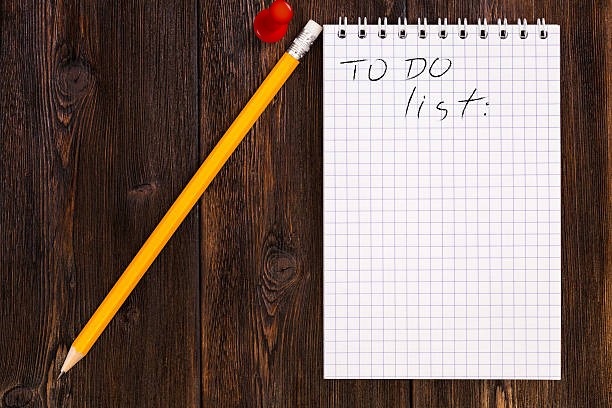 TO DO
list: